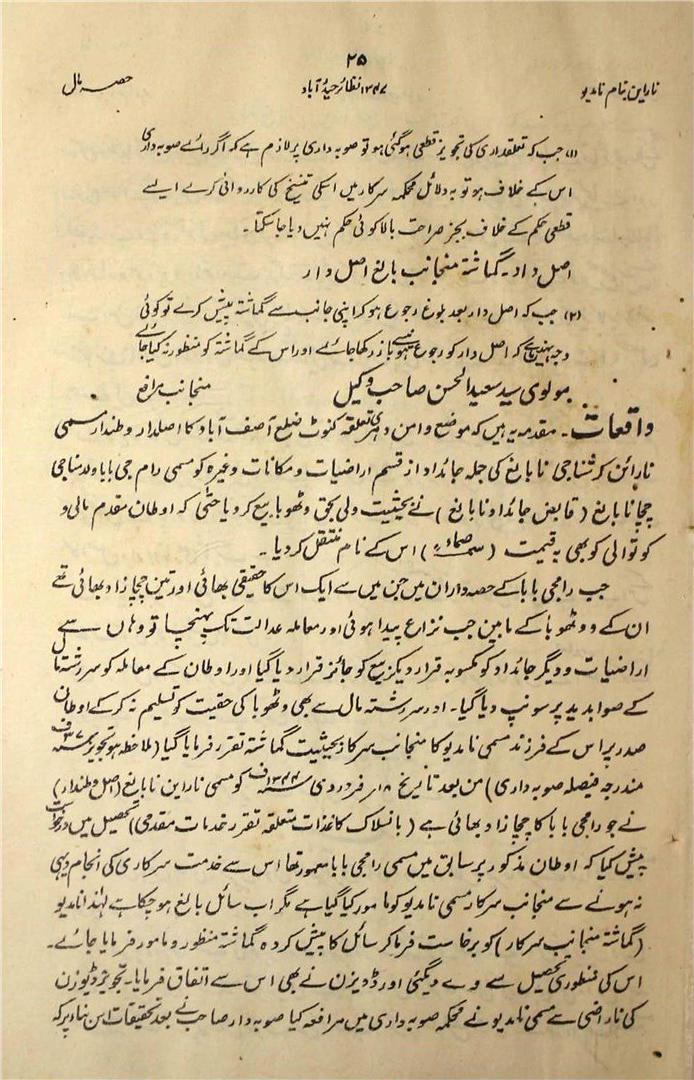 ۲۵
ناراین بنام نامدیو ۱۳۴۷ نظائر حیدرآباد حصہ مال
(۱) جب کہ تعلقداری کی تجویز قطعی ہوگئی ہو تو صوبہ داری پر لازم ہے کہ اگر رائے صوبہ داری
اس کے خلاف ہو تو بہ دلائل محکمہ سرکار میں اسکی تنسیخ کی کارروائی کرے ایسے
قطعی حکم کے خلاف بجز صراحت بالا کوئی حکم نہیں دیا جاسکتا۔
اصل دار۔ گماشتہ منجانب بالغ اصل دار
(۲) جب کہ اصل دار بعد بلوغ رجوع ہوکر اپنی جانب سے گماشتہ پیش کرے تو کوئی
وجہ نہیں ہے کہ اصل دار کو رجوع ہونیسے باز رکھا جائے اور اس کے گماشتہ کو منظور نہ کیا جائے
مولوی سید سعید الحسن صاحب وکیل منجانب مرافع
واقعات۔ مقدمہ یہ ہیں کہ موضع وامن تعلقہ کنوٹ ضلع آصف آباد کا اصلدار وطندار مسمی
نارائن کرشناجی نابالغ کی جملہ جائداد از قسم اراضیات و مکانات وغیرہ کو مسمی رام جی بابا ولد شناجی
چچا نابالغ (قابض جائداد نابالغ) نے بحیثیت ولی بحق وٹھوبا بیع کردیا حتٰی کہ اوطان مقدم مالی و
کوتوالی کو بھی بہ قیمت اس کے نام منتقل کردیا۔
جب رامجی بابا کے حصہ داران میں جن میں سے ایک اس کا حقیقی بھائی اور تین چچا زاد بھائی تھے
ان کے و وٹھوبا کے مابین جب نزاع پیدا ہوئی اور معاملہ عدالت تک پہنچا تو وہاں سے
اراضیات و دیگر جائداد کو مکسوبہ قرار دیکر بیع کو جائز قرار دیا گیا اور اوطان کے معاملہ کو سررشتہ مال
کے صوابدید پر سونپ دیا گیا۔ اور سررشتہ مال سے بھی وٹھوبا کی حقیت کو تسلیم نہ کرکے اوطان
صدر پر اس کے فرزند مسمی نامدیو کا منجانب سرکار بحیثیت گماشتہ تقرر فرمایا گیا (ملاحظہ ہو تجویز ۳۷ف
مندرجہ فیصلہ صوبہ داری) من بعد تاریخ ۱۸ فروردی ۱۳۴۴ف کو مسمی ناراین نابالغ (اصل وطندار)
نے جو رامجی بابا کا چچا زاد بھائی ہے (بانسلاک کاغذات متعلقہ تقرر خدمات مقدمی) تحصیل میں درخواست
پیش کیا کہ اوطان مذکور پر سابق میں مسمی رامجی بابا مامور تھا اس سے خدمت سرکاری کی انجام دہی
نہ ہونے سے منجانب سرکار مسمی نامدیو کو مامور کیا گیا ہے مگر اب سائل بالغ ہو چکا ہے لہٰذا نامدیو
(گماشتہ منجانب سرکار) کو برخاست فرماکر سائل کا پیش کردہ گماشتہ منظور و مامور فرمایا جائے۔
اس کی منظوری تحصیل سے دے دیگئی اور ڈویزن نے بھی اس سے اتفاق فرمایا۔ تجویز ڈویزن
کی ناراضی سے مسمی نامدیو نے محکمہ صوبہ داری میں مرافعہ کیا صوبہ دار صاحب نے بعد تحقیقات اس بناء پر کہ